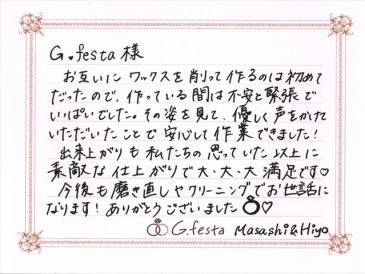 G.festa 様
お互いにワックスを削って作るのは初めて
だったので、作っている間は不安と緊張で
いっぱいでした。その姿を見て、優しく声をかけて
いただいたことで安心して作業できました!
出来上がりも私たちの思っていた以上に
素敵な仕上がりで大・大・大満足です♡
今後も磨き直しやクリーニングでお世話に
なります!ありがとうございました♡
G.festa Masashi&Hiyo